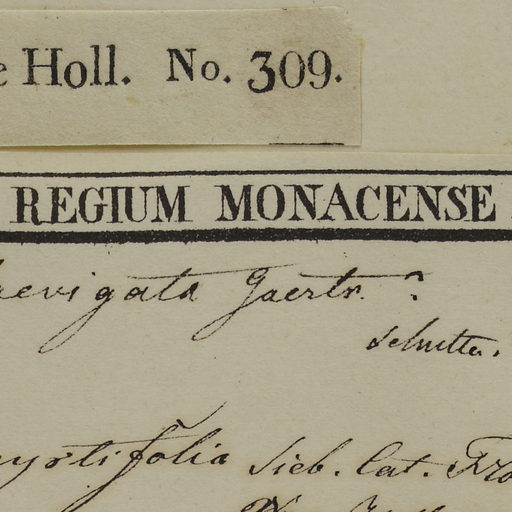 e Holl. No. 309.
REGIUM MONACENSE
laevigata Gaertn. ?
Schultes.
myrtifolia Sieb. Cat.